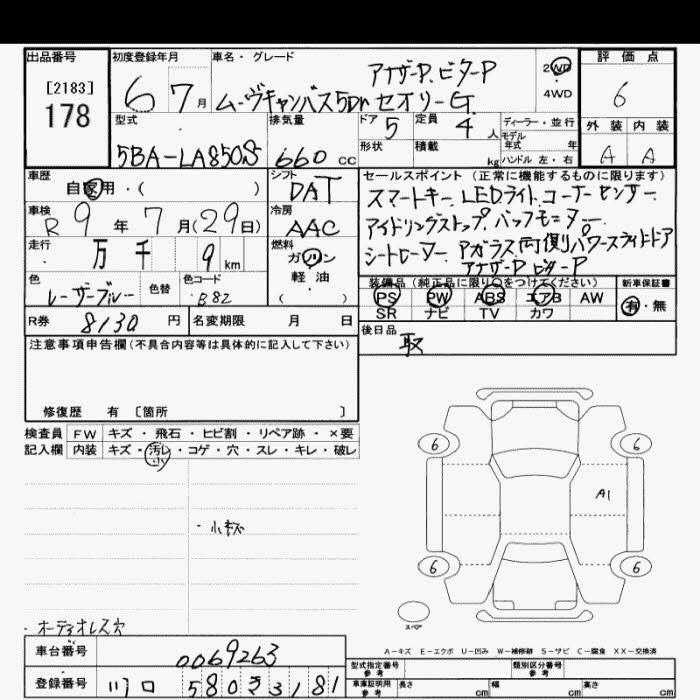 出品番号
[2183]
178
初度登録年月
6 7月
車名・グレード
アナザーP.ビターP
ムーヴキャンバス5Dr セオリーG
2WD
4WD
評価点
6
外装 内装
A A
型式
5BA-LA850S
排気量
660 cc
ドア 5
定員 4 人
形状
積載 kg
ディーラー・並行
モデル
年式 年
ハンドル 左・右
車歴
自家用・( )
シフト
DAT
車検
R 9 年 7 月(29日)
冷房
AAC
走行
万 千 9 km
燃料
ガソリン
軽油
( )
色
レーザーブルー
色替
色コード
B82
セールスポイント (正常に機能するものに限ります)
スマートキー. LEDライト. コーナーセンサー.
アイドリングストップ. バックモニター.
シートヒーター. アガラス 両側パワースライドドア
アナザーP ビターP
装備品 (純正品に限り○をつけてください)
PS PW ABS エアB AW
SR ナビ TV カワ
新車保証書
有・無
R券 8130 円
名変期限 月 日
後日品
取
注意事項申告欄(不具合内容等は具体的に記入して下さい)
修復歴 有 〔箇所 〕
検査員
記入欄
FW キズ・飛石・ヒビ割・リペア跡・×要
内装 キズ・汚レ・コゲ・穴・スレ・キレ・破レ
小
・小キズ
・オーディオレス穴
6 6
A1
6 6
スペア
A-キズ E-エクボ U-凹み W-補修跡 S-サビ C-腐食 XX-交換済
車台番号
0069263
登録番号
川口 580 さ 3181
型式指定番号
参考
類別区分番号
参考
車庫証明用
参考
長さ cm
幅 cm
高さ cm